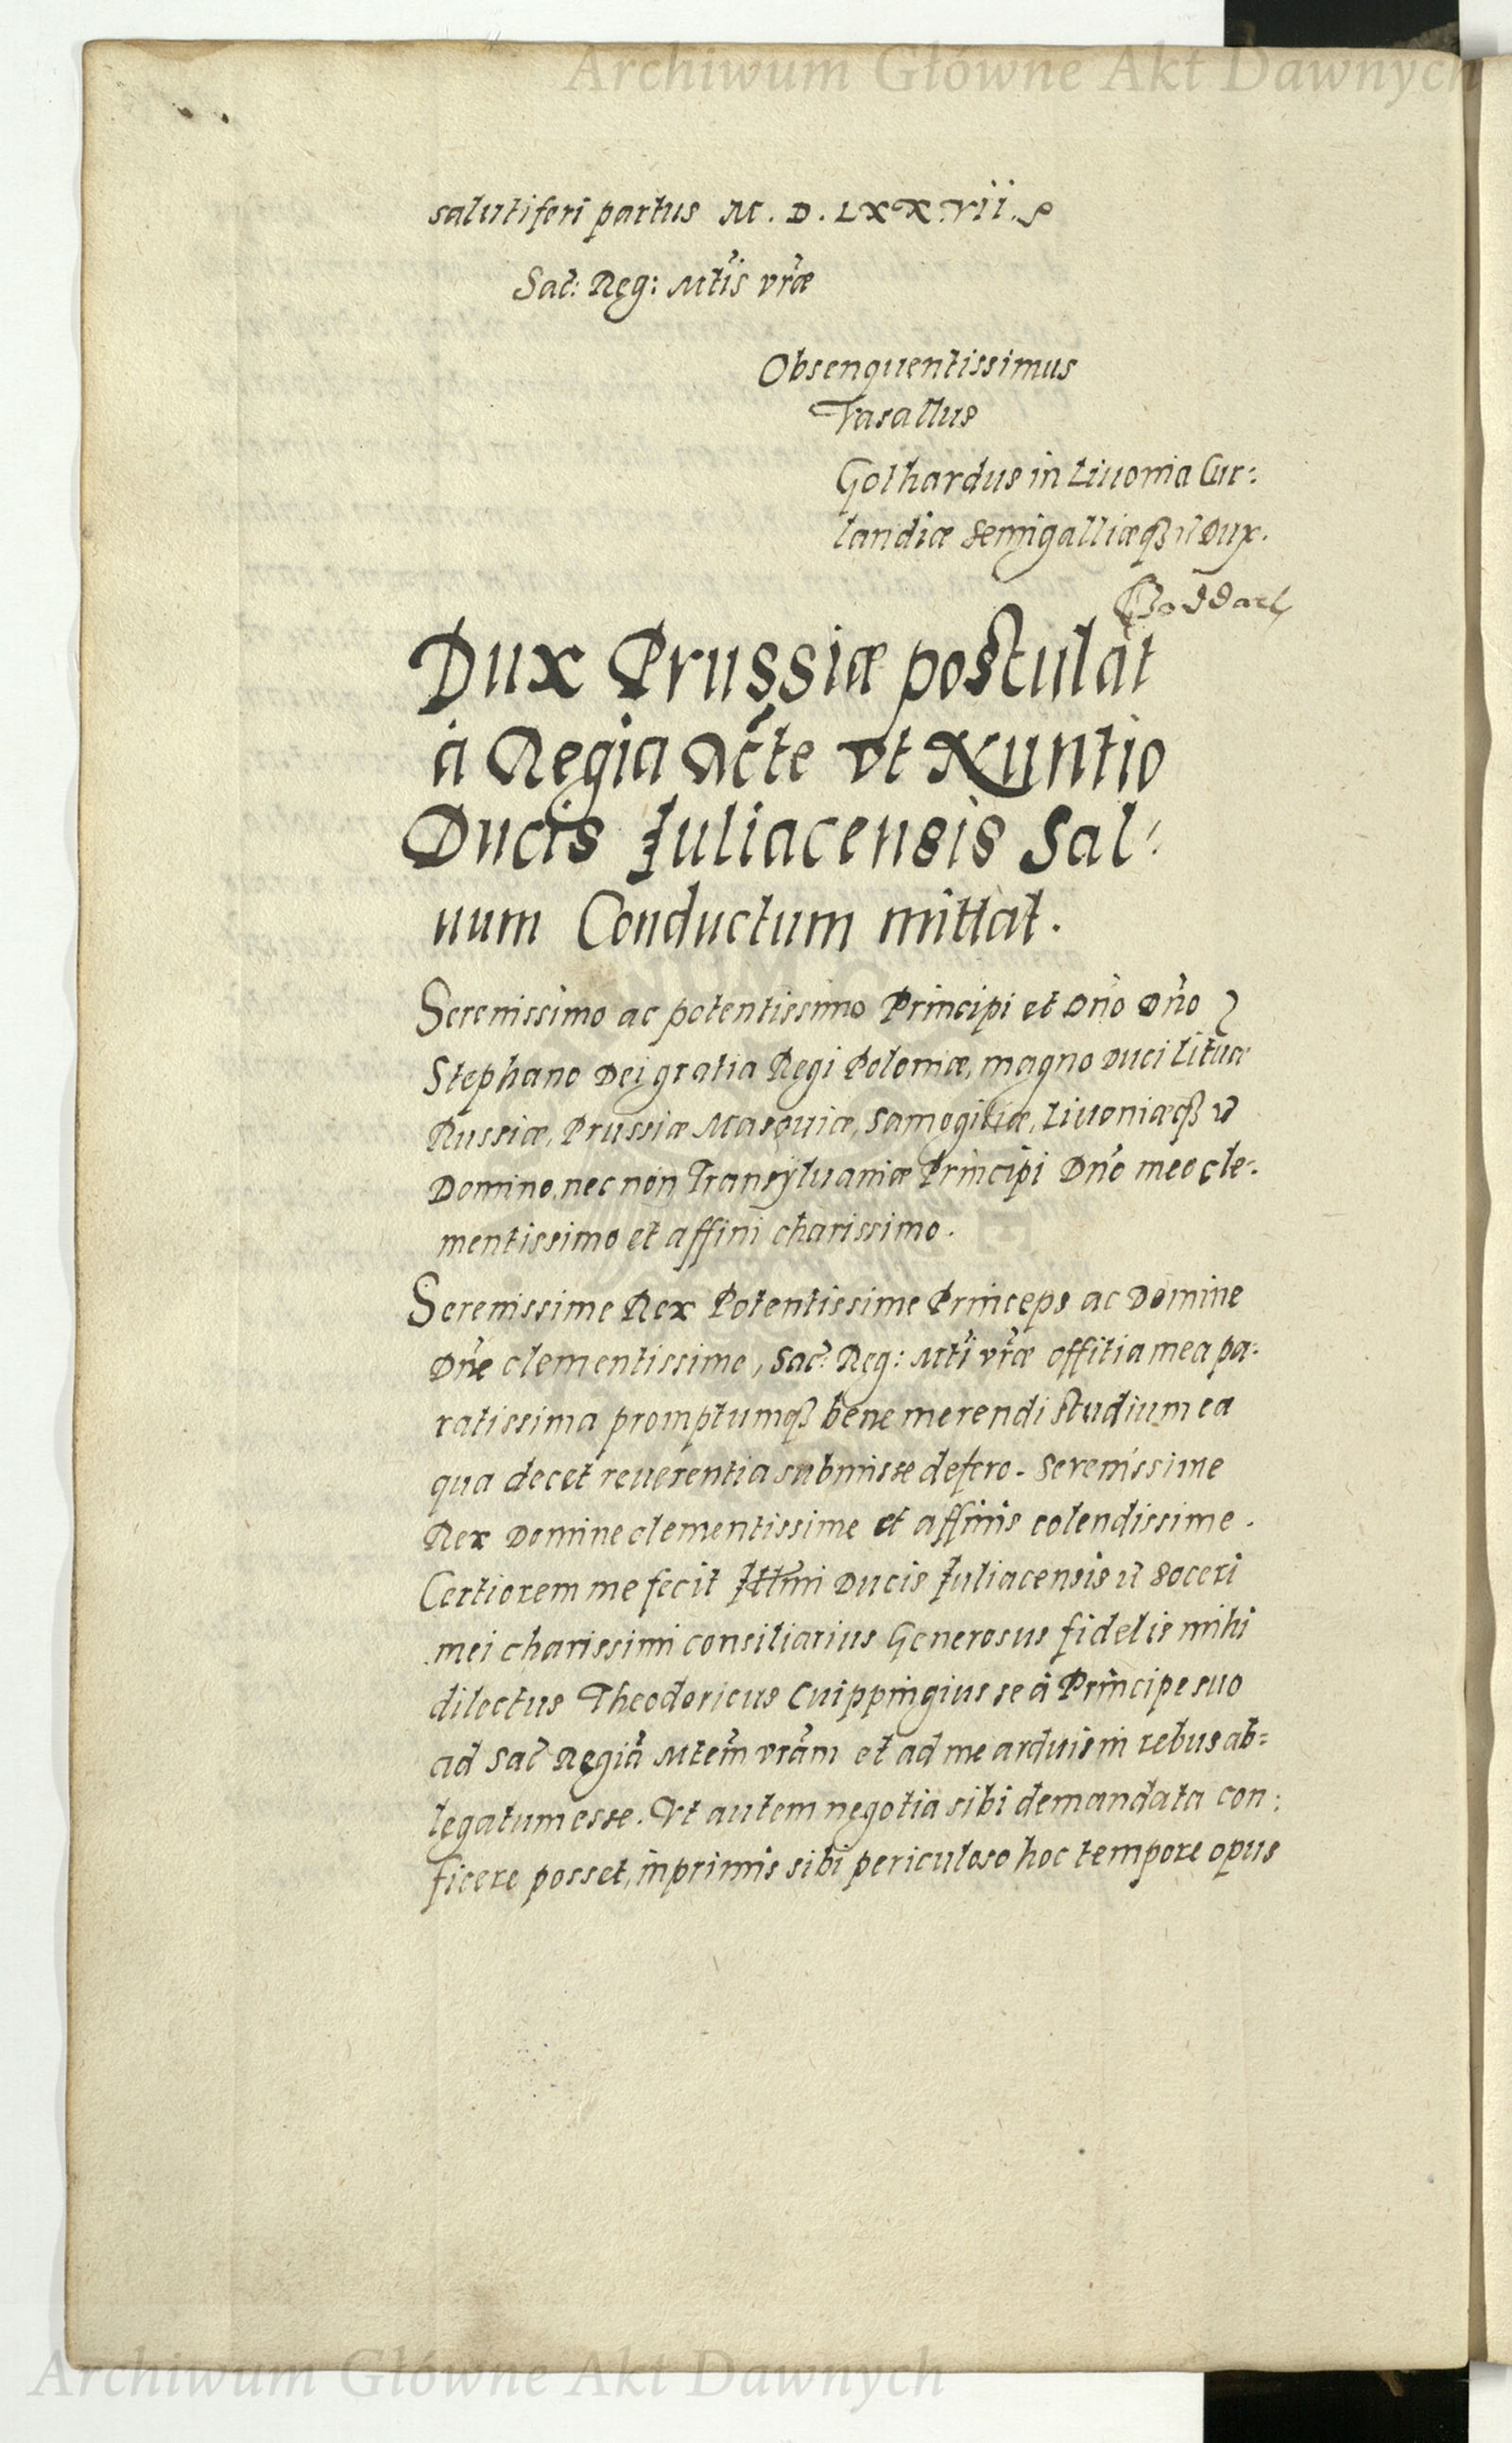 Archiwum Główne Akt Dawnych
salutiferi partus M. D. LXXVII.
Sac: Reg: Mtis vræ
Obsenquentissimus
Vasallus
Gothardus in Livonia Cur:
landiæ Semigalliæq3 Dux.
Dux Prussiæ postulat
à Regia Mte vt Nuntio
Ducis Juliacensis Sal:
uum Conductum mittat.
Serenissimo ac potentissimo Principi et Dno Dno
Stephano Dei gratia Regi Poloniæ, magno Duci Lituæ
Russiæ, Prussiæ Masouiæ, Samogitiæ, Liuoniæq3
Domino, nec non Transyluaniæ Principi Dno meo cle:
mentissimo et affini charissimo.
Serenissime Rex Potentissime Princeps ac Domine
Dne clementissime, Sac: Reg: Mti vræ offitia mea pa:
ratissima promptumq3 bene merendi studium ea
qua decet reuerentia submisse defero. Serenissime
Rex Domine clementissime et affinis colendissime.
Certiorem me fecit Illmi Ducis Juliacensis Soceri
mei charissimi consiliarius Generosus fidelis mihi
dilectus Theodoricus Cuippingius se à Principe suo
ad Sac Regiã Mtem vram et ad me arduis in rebus ab=
legatum esse. Vt autem negotia sibi demandata con:
ficere posset, inprimis sibi periculoso hoc tempore opus
Archiwum Główne Akt Dawnych